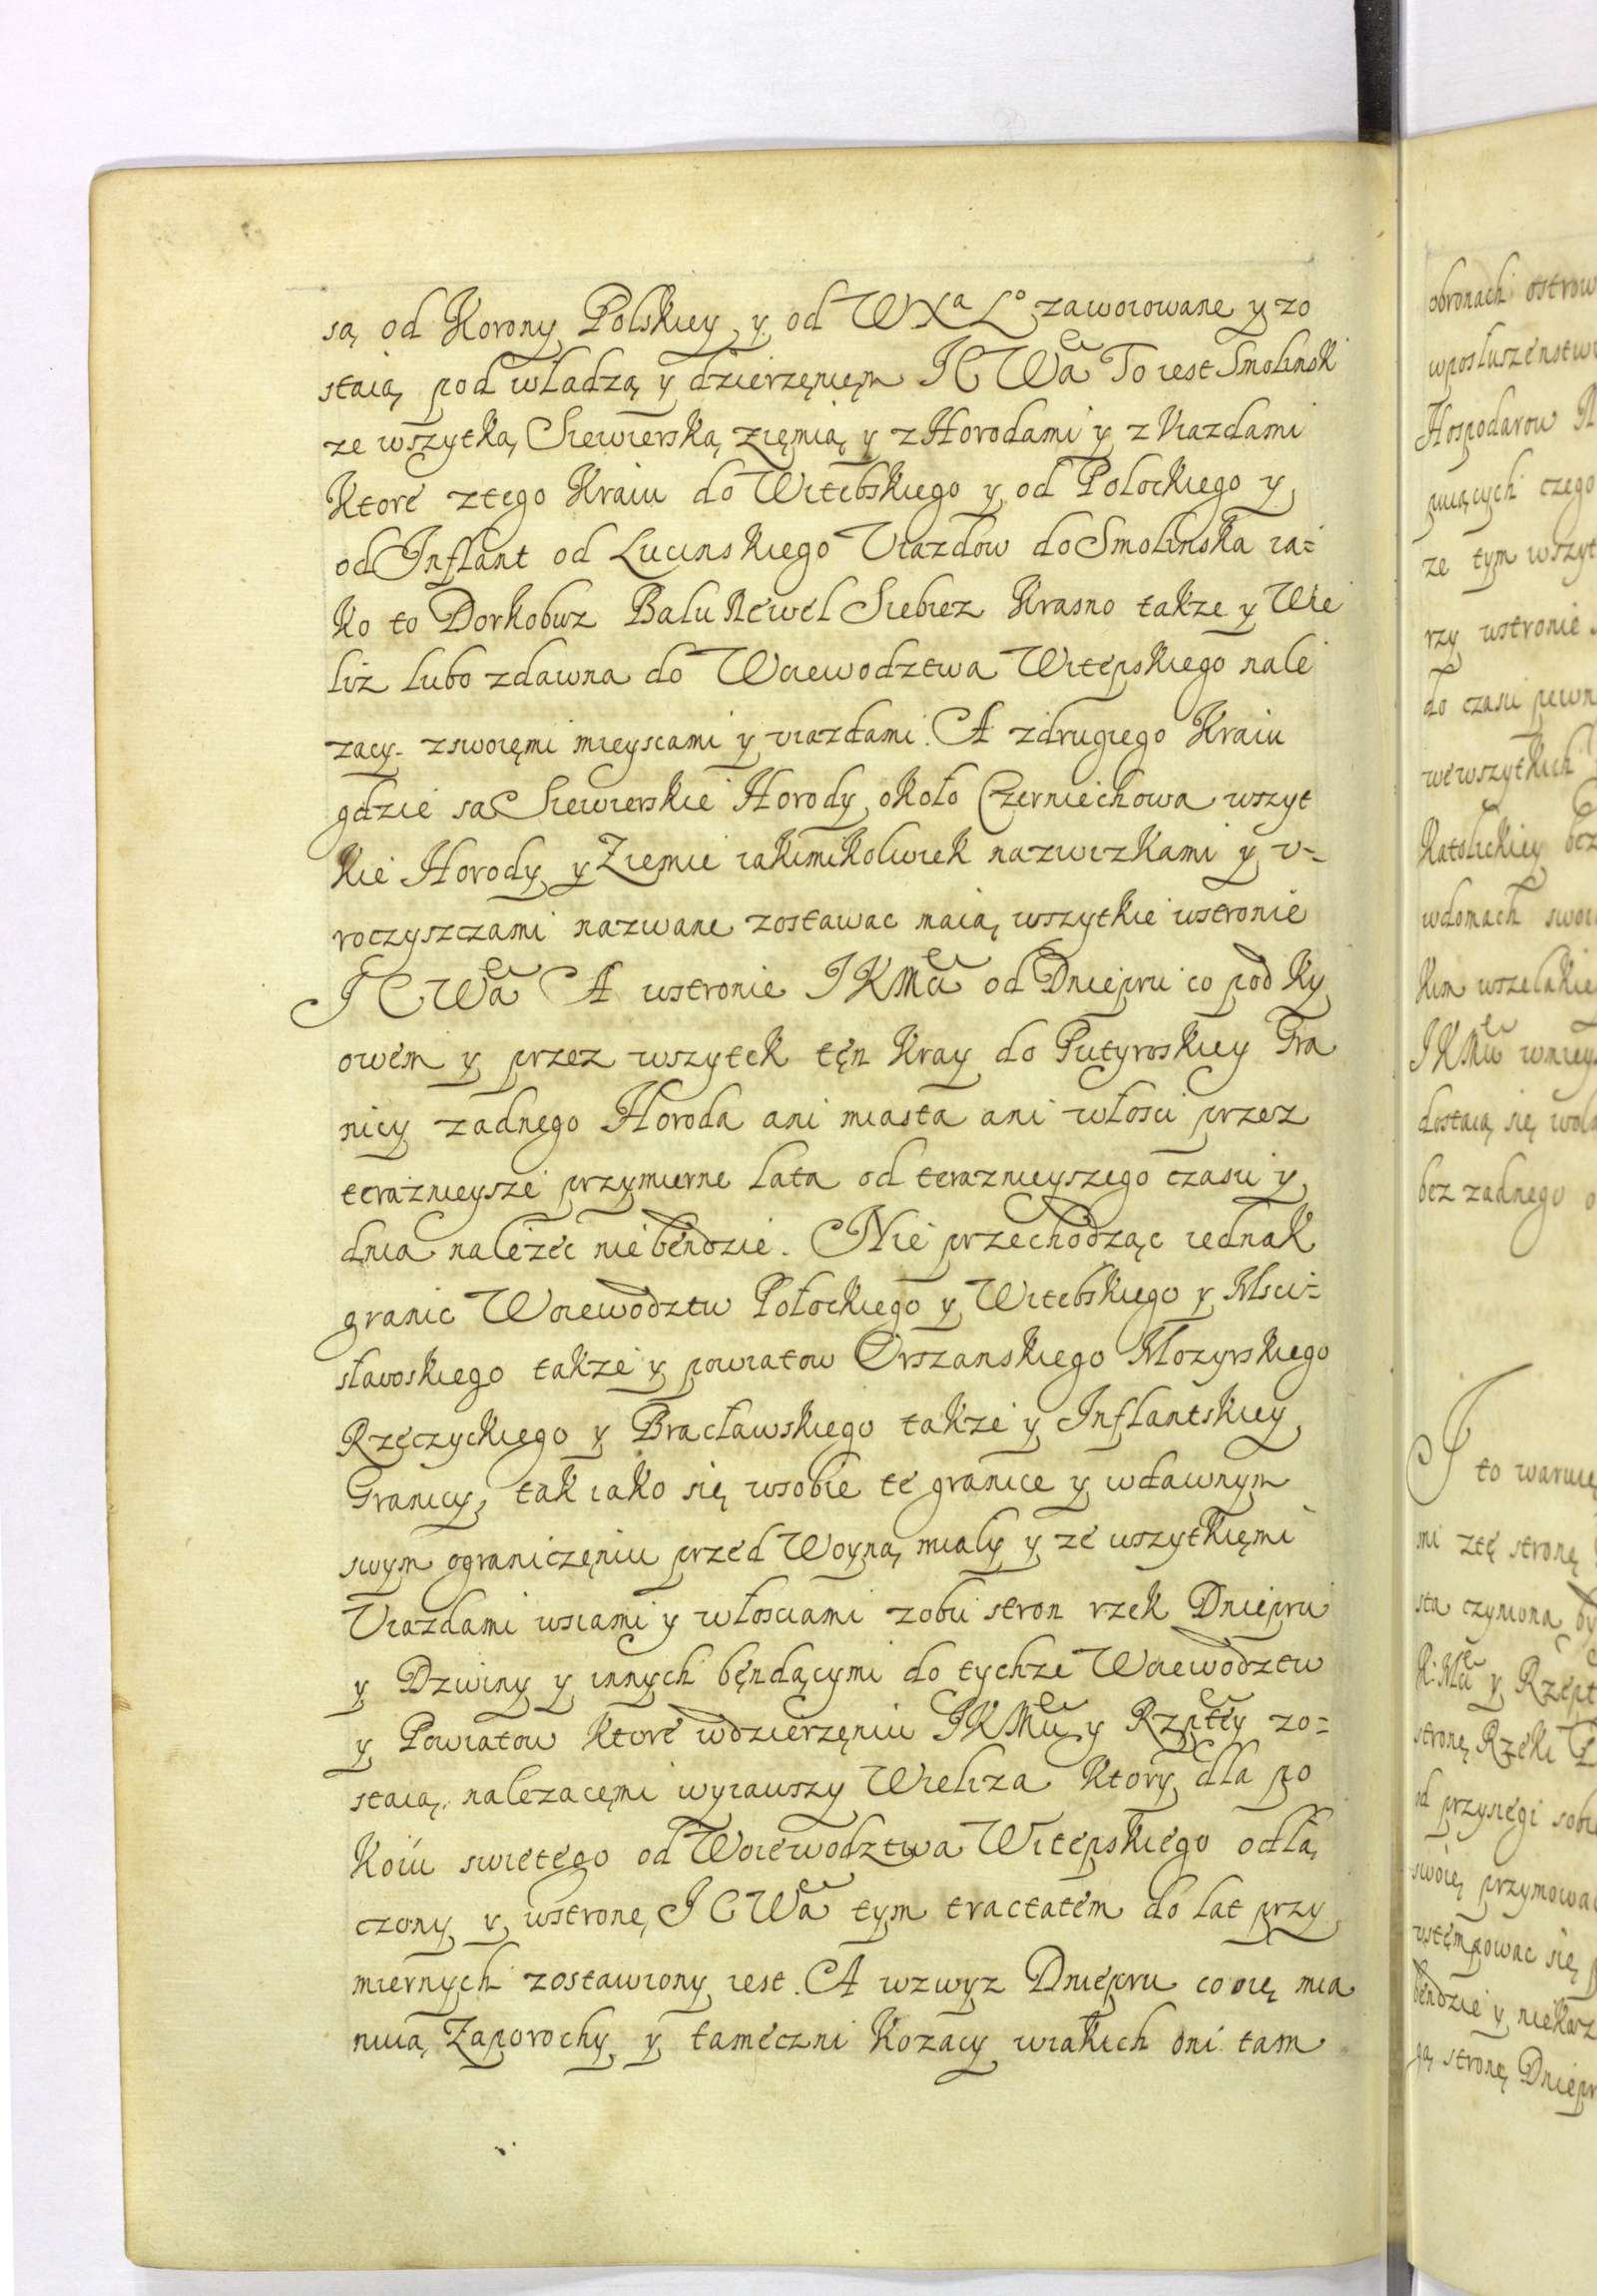 są od Korony Polskiey y od WXa Lo zawoiowane y zo
staią pod władzą y dzierzęnięm JCWa To iest Smolinsk
ze wszytką Siewierską zięmią y z Horodami y z Uiazdami
Ktoré z tego Kraiu do Witebskiego y od Polockiego y
od Inflant od Lucinskiego Uiazdow do Smolinska ia=
ko to Dorhobuz Balu Newel Siebiez Krasno takze y Wie
liz lubo zdawna do Woiewodztwa Witepskiego nale
zacy z swoięmi mieyscami y uiazdami. A z drugiego Kraiu
gdzie są Siewierskie Horody około Czerniechowa wszyt
kie Horody y Ziemie iakimikolwiek nazwizkami y v=
roczyszczami nazwane zostawac maią wszytkie wstronie
JCWa A wstronie JKMci od Dniepru co pod Ky
owem y przez wszytek tęn Kray do Putyroskiey Gra
nicy zadnego Horoda ani miasta ani włosci przez
teraznieysze przymierne lata od teraznieyszego czasu y
dnia nalezec nie bendzie. Nie przechodząc iednak
granic Woiewodztw Połockiego y Witebskiego y Msci=
sławoskiego takze y powiatow Orszanskiego Mozyrskiego
Rzęczyckiego y Bracławskiego takze y Inflantskiey
Granicy, tak iako się wsobie te granice y wdawnym
swym ograniczęniu przed Woyną miały y ze wszytkięmi
Uiazdami wsiami y włosciami zobu stron rzek Dniepru
y Dzwiny y innych będącymi do tychze Woiewodztw
y Powiatow które wdzierzęniu JKMci y Rzptey zo=
staią nalezacęmi wyiawszy Wieliza ktory dla po
koiu swietego od Woiewodztwa Witepskiego odłą
czony y wstronę JCWa tym tractatem do lat przy
miernych zostawiony iest. A wzwyz Dniepru co się mia
nuią Zaporochy y tameczni Kozacy wiakich oni tam
obronach ostrow
wposłuszenstwi
Hospodarow
czego
ze tym wszyt
rzy wstronie
do czasu pewn
wewszytkich
Katolickiey bez
wdomach swoi
kim wszelakie
JKMci wniey
dostaią się wola
bez zadnego o
to waruię
mi ztę stronę
sta czyniona by
y Rzept
stronę Rzeki
od przysiegi sobie
swoię przymowac
wstempowac się
bendzie y niekaz
gą stronę Dniepr